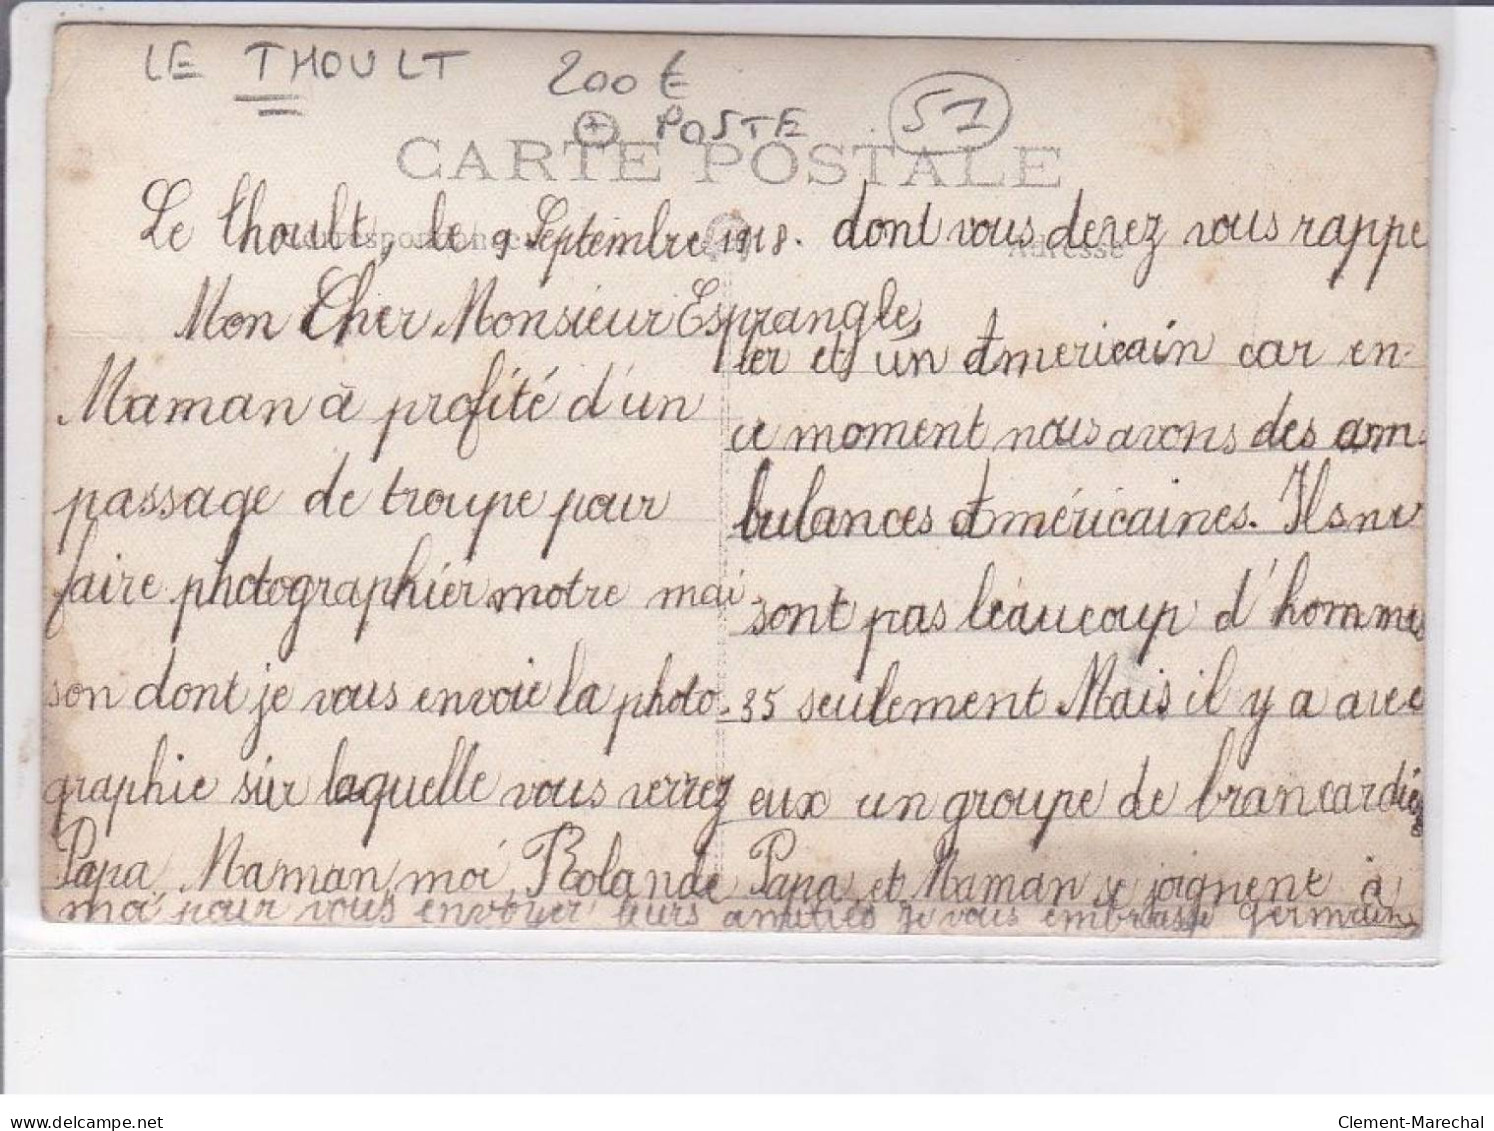 LE THOULT 200€ 51
+ POSTE
CARTE POSTALE
Correspondance Adresse
Le Thoult, le 9 Septembre 1918.
Mon Cher Monsieur Esprangle,
Maman à profité d'un
passage de troupe pour
faire photographier notre mai
son dont je vous envoie la photo-
graphie sur laquelle vous verrez
Papa, Maman, moi, Rolande
dont vous devez vous rappe
ler et un Américain car en-
ce moment nous avons des am-
bulances Américaines. Ils ne
sont pas beaucoup d'hommes
35 seulement Mais il y a avec
eux un groupe de brancardiers
Papa et Maman se joignent à
moi pour vous envoyer leurs amitiés je vous embrasse Germaine
delcampe.net
Clement-Marechal